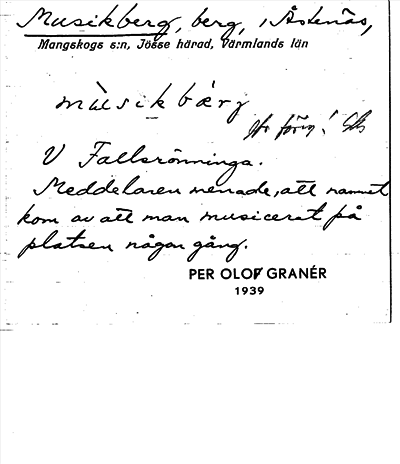 Musikberg, berg, i Åstenäs,
Mangskogs s:n, Jösse härad, Värmlands län
mùsikbærj
förv.!
V Fallsrönninga.
Meddelaren menade, att namnet
kom av att man musicerat på
platsen någon gång.
PER OLOF GRANÉR
1939